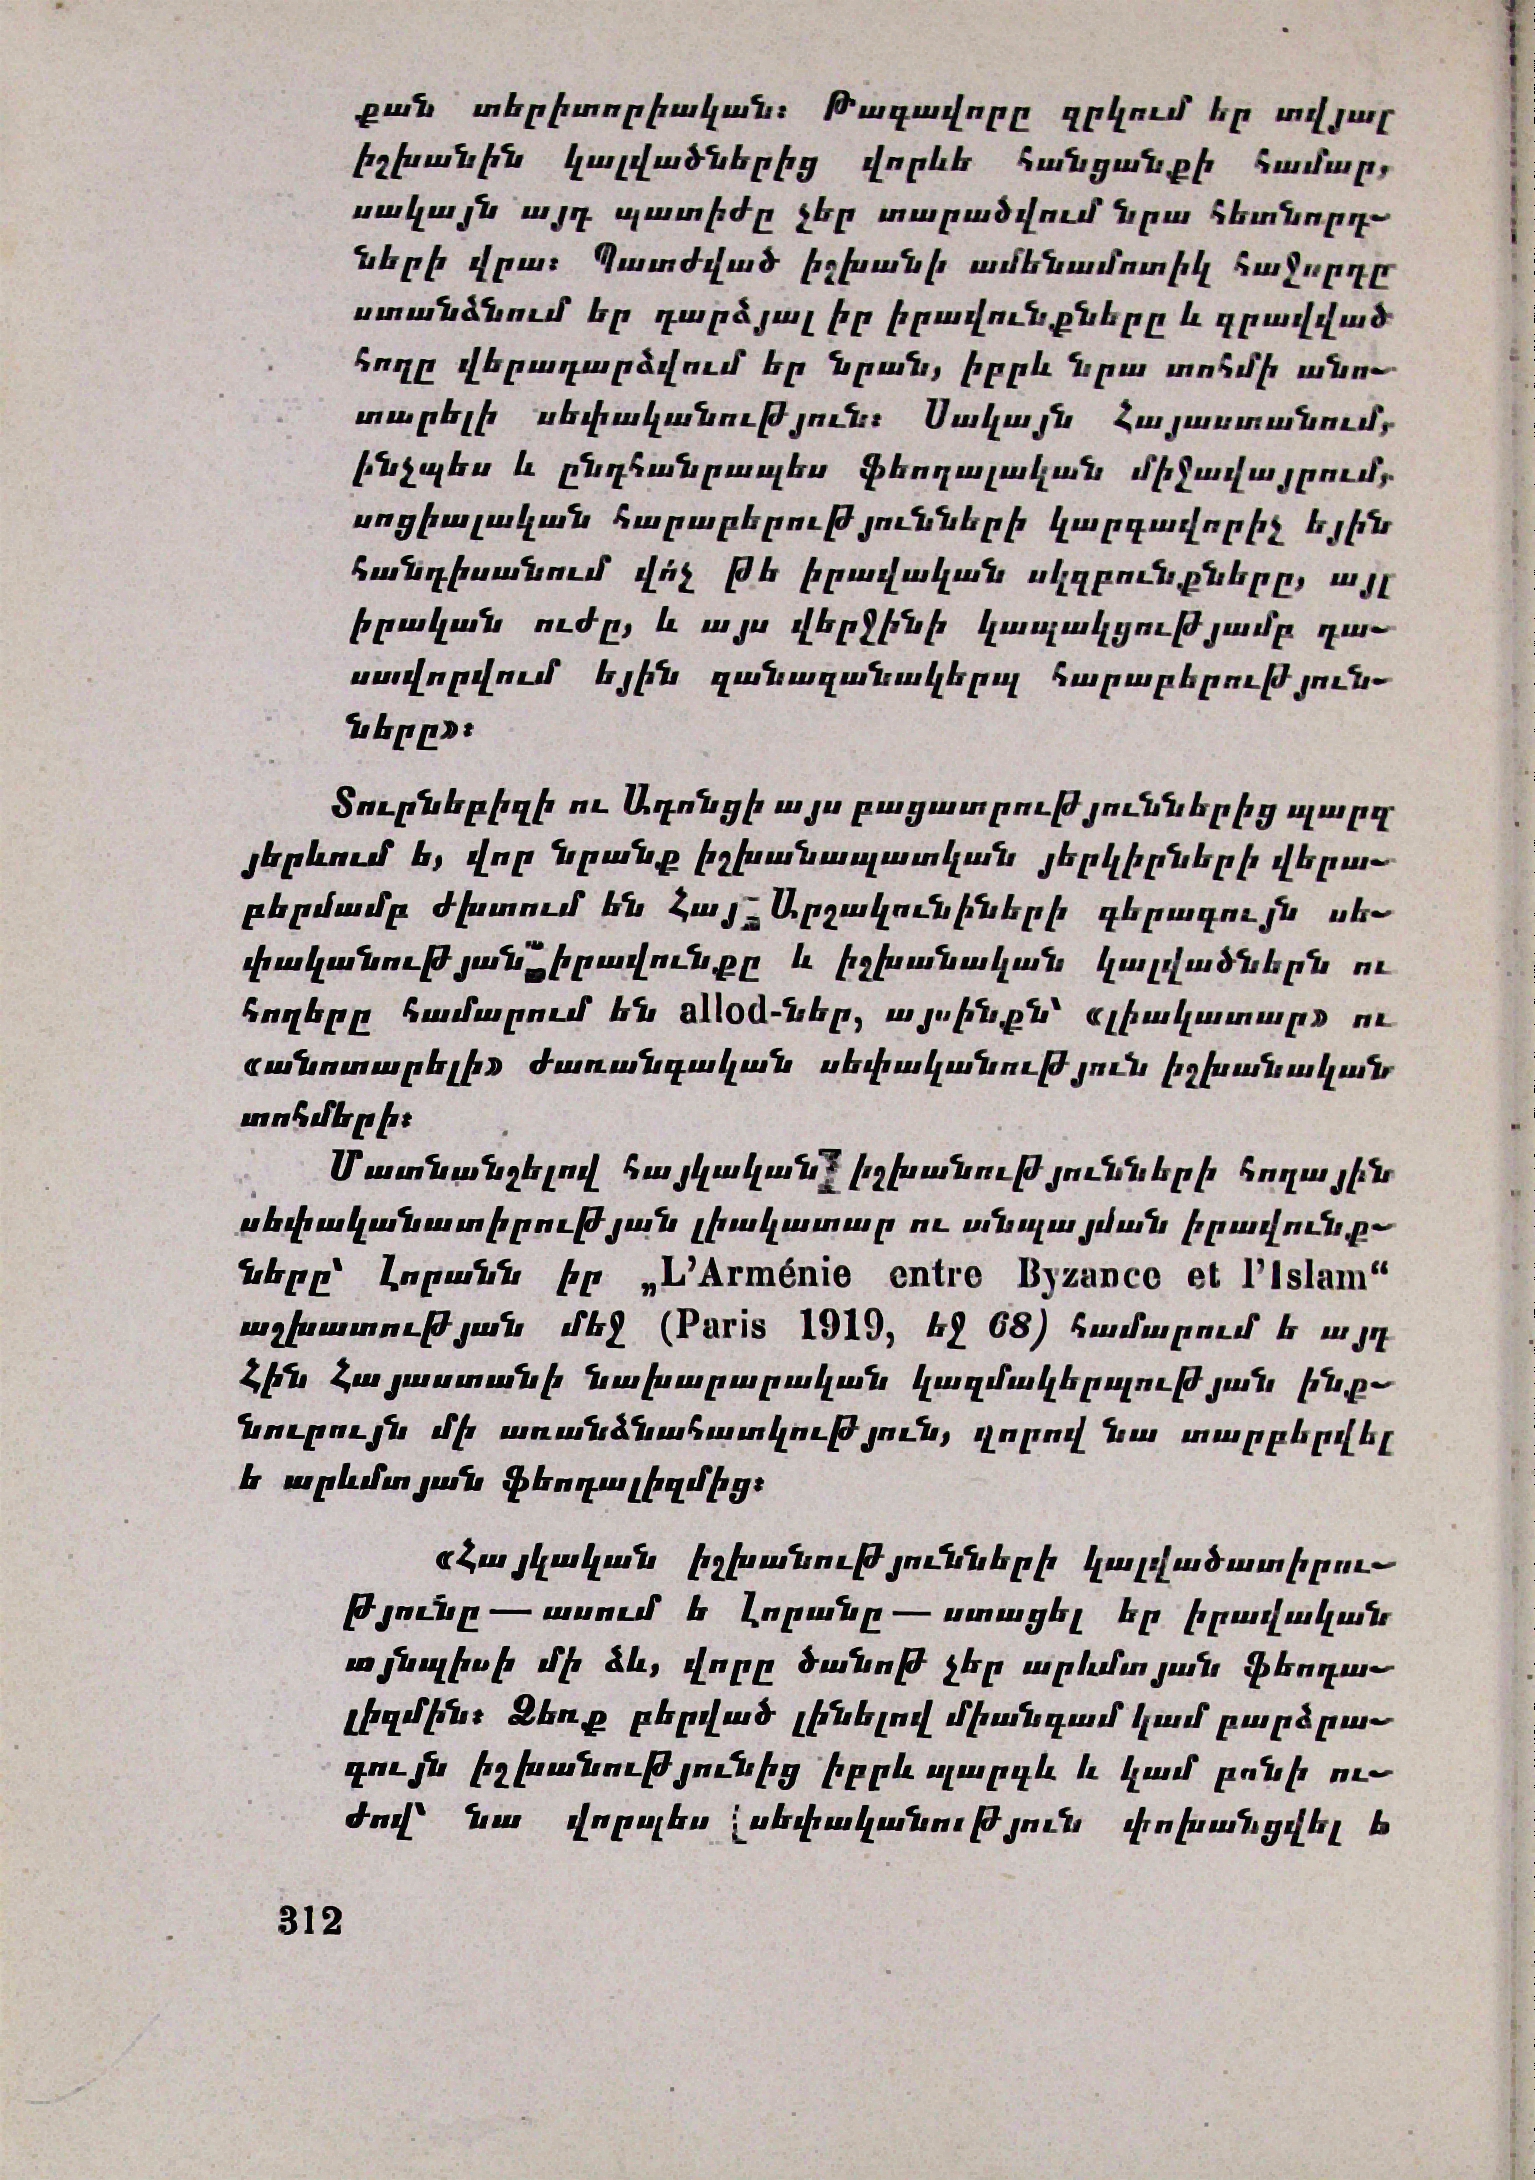 քան տերիտորիական։ Թագավորը զրկում եր տվյալ
իշխանին կալվածներից վորևե հանցանքի համար,
սակայն այդ պատիժը չեր տարածվում նրա հետնորդ-
ների վրա։ Պատժված իշխանի ամենամոտիկ հաջորդը
ստանձնում եր դարձյալ իր իրավունքները և գրավված
հողը վերադարձվում եր նրան, իբրև նրա տոհմի անո-
տարելի սեփականություն։ Սակայն Հայաստանում,
ինչպես և ընդհանրապես ֆեոդալական միջավայրում,
սոցիալական հարաբերությունների կարգավորիչ եյին
հանդիսանում վո՛չ թե իրավական սկզբունքները, այլ
իրական ուժը, և այս վերջինի կապակցությամբ դա-
սավորվում եյին զանազանակերպ հարաբերություն-
ները»։
Տուրնեբիզի ու Ադոնցի այս բացատրություններից պարզ
յերևում ե, վոր նրանք իշխանապատկան յերկիրների վերա-
բերմամբ ժխտում են Հայ-Արշակունիների գերագույն սե-
փականության իրավունքը և իշխանական կալվածներն ու
հողերը համարում են allod-ներ, այսինքն՝ «լիակատար» ու
«անոտարելի» ժառանգական սեփականություն իշխանական
տոհմերի։
Մատնանշելով հայկական իշխանությունների հողային
սեփականատիրության լիակատար ու անպայման իրավունք-
ները՝ Լորանն իր „L’Arménie entre Byzance et l’Islam“
աշխատության մեջ (Paris 1919, եջ 68) համարում ե այդ
Հին Հայաստանի նախարարական կազմակերպության ինք-
նուրույն մի առանձնահատկություն, վորով նա տարբերվել
ե արևմտյան ֆեոդալիզմից։
«Հայկական իշխանությունների կալվածատիրու-
թյունը — ասում ե Լորանը — ստացել եր իրավական
այնպիսի մի ձև, վորը ծանոթ չեր արևմտյան ֆեոդա-
լիզմին։ Ձեռք բերված լինելով միանգամ կամ բարձրա-
գույն իշխանությունից իբրև պարգև և կամ բռնի ու-
ժով՝ նա վորպես սեփականություն փոխանցվել ե
312